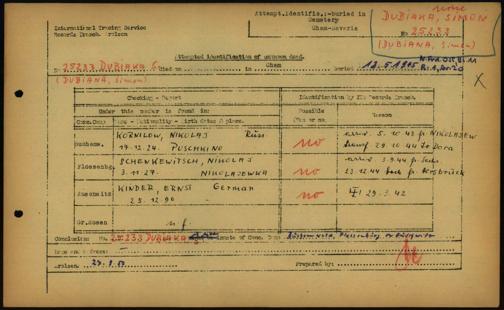 International Tracing Service
Records Branch. Arolsen
Attempt.Identific.:-buried in
Cemetery
Cham-Bavaria
DUBIAKA, SIMON
No 25233
(DUBIAKA, Simon)
Attempted identification of unknown dead.
No 25233 DUBIAKA S. Died on in Cham Buried 12.5.1945
(DUBIAKA, Simon)
Checking - Report
Identification by ITS Records Branch.
Under this number is found in:
Possible Yes or no.
Reason
Conc.Camp Name - Nationality - Birth date & place.
Buchenw. KORNILOW, NIKOLAJ Russ
19.12.24. PUSCHKINO
no
5.10.43 fr NIKOLAJEW
29.10.44 to Dora
Flossenbg. SCHENKEWITSCH, NIKOLAJ
3.11.27. NIKOLAJEWKA
no
3.9.44 fr
23.12.44 to Hersbruck
Auschwitz KINDER, ERNST German
23.12.90
no
29.3.42
Gr.Rosen n.f.
Conclusion: No. 25233 DUBIAKA S. inmate of Conc. Camp
Arolsen,
Prepared by: